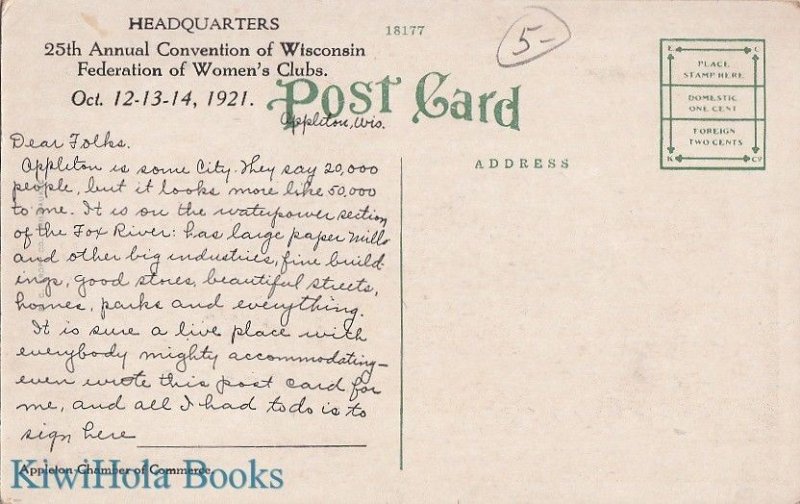 HEADQUARTERS
25th Annual Convention of Wisconsin
Federation of Women's Clubs.
Oct. 12-13-14, 1921.
18177
5-
POST CARD
Appleton, Wis.
Dear Folks.
Appleton is some City. They say 20,000
people, but it looks more like 50,000
to me. It is on the waterpower section
of the Fox River: has large paper mills
and other big industries, fine build-
ings, good stores, beautiful streets,
homes, parks and everything.
It is sure a live place with
everybody mighty accommodating—
even wrote this post card for
me, and all I had to do is to
sign here
Appleton Chamber of Commerce.
KiwiHola Books
ADDRESS
E C
PLACE
STAMP HERE
DOMESTIC
ONE CENT
FOREIGN
TWO CENTS
K Co